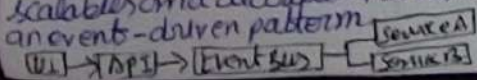 an events-driven patterm
UI → API → Event Bus
Service A
Service B